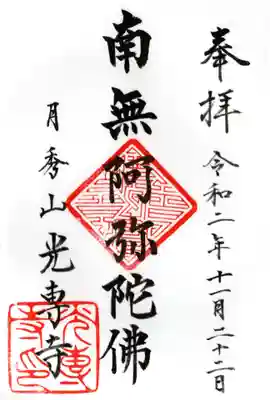 奉拝
令和二年十一月二十二日
南無阿弥陀佛
月秀山光專寺